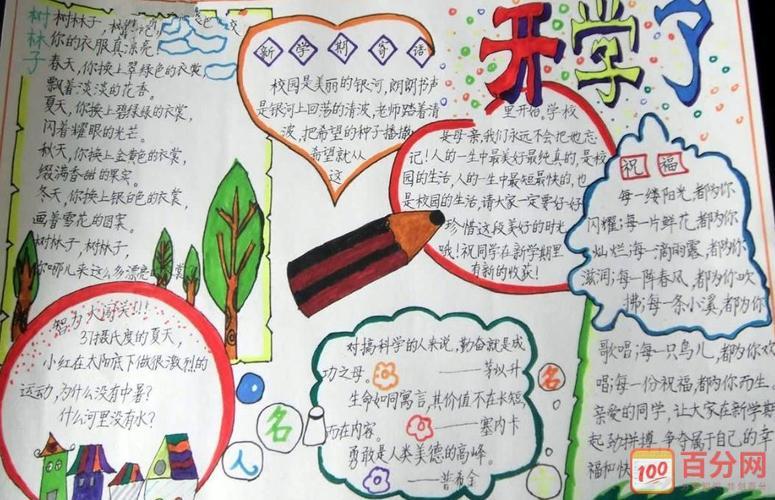 开学了
树林子
树林子,树林子,
你的衣服真漂亮
春天,你换上翠绿色的衣裳,
飘着淡淡的花香。
夏天,你换上碧绿绿的衣裳,
闪着耀眼的光芒。
秋天,你换上金黄色的衣裳,
缀满香甜的果实。
冬天,你换上银白色的衣裳,
画着雪花的图案。
树林子,树林子,
你哪儿来这么多漂亮
新学期寄语
校园是美丽的银河,朗朗书声
是银河上回荡的清波,老师踏着清
波,把希望的种子播撒
希望就从
这
里开始,学校
是母亲,我们永远不会把他忘
记!人的一生中最美好最纯真的,是校
园的生活,人的一生中最短最快的,也
是校园的生活,请大家一定要好好
珍惜这段美好的时光
哦!祝同学在新学期里
有新的收获!
祝福
每一缕阳光,都为你
闪耀;每一片鲜花,都为你
灿烂;每一滴雨露,都为你
滋润;每一阵春风,都为你吹
拂;每一条小溪,都为你
歌唱;每一只鸟儿,都为你欢
唱;每一份祝福,都为你而生
亲爱的同学,让大家在新学期
起劲拼搏,争夺属于自己的幸
福和快
智力大闯关!!!
37摄氏度的夏天,
小红在太阳底下做很激烈的
运动,为什么没有中暑?
什么河里没有水?
名人名
对搞科学的人来说,勤奋就是成
功之母。
——茅以升
生命如同寓言,其价值不在长短,
而在内容。
——塞内卡
勇敢是人类美德的高峰。
——普希金
100
百分网